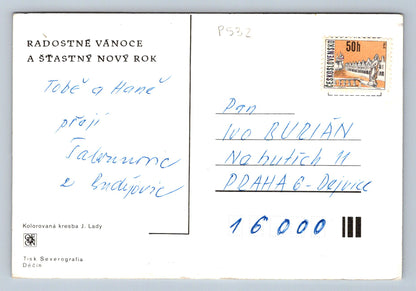 RADOSTNÉ VÁNOCE
A ŠŤASTNÝ NOVÝ ROK
P532
ČESKOSLOVENSKO
50h
Tobě a Haně
přejí
z Budějovic
Pan
Ivo BURIÁN
Na hutích 11
PRAHA 6 - Dejvice
16000
Kolorovaná kresba J. Lady
Tisk Severografia
Děčín